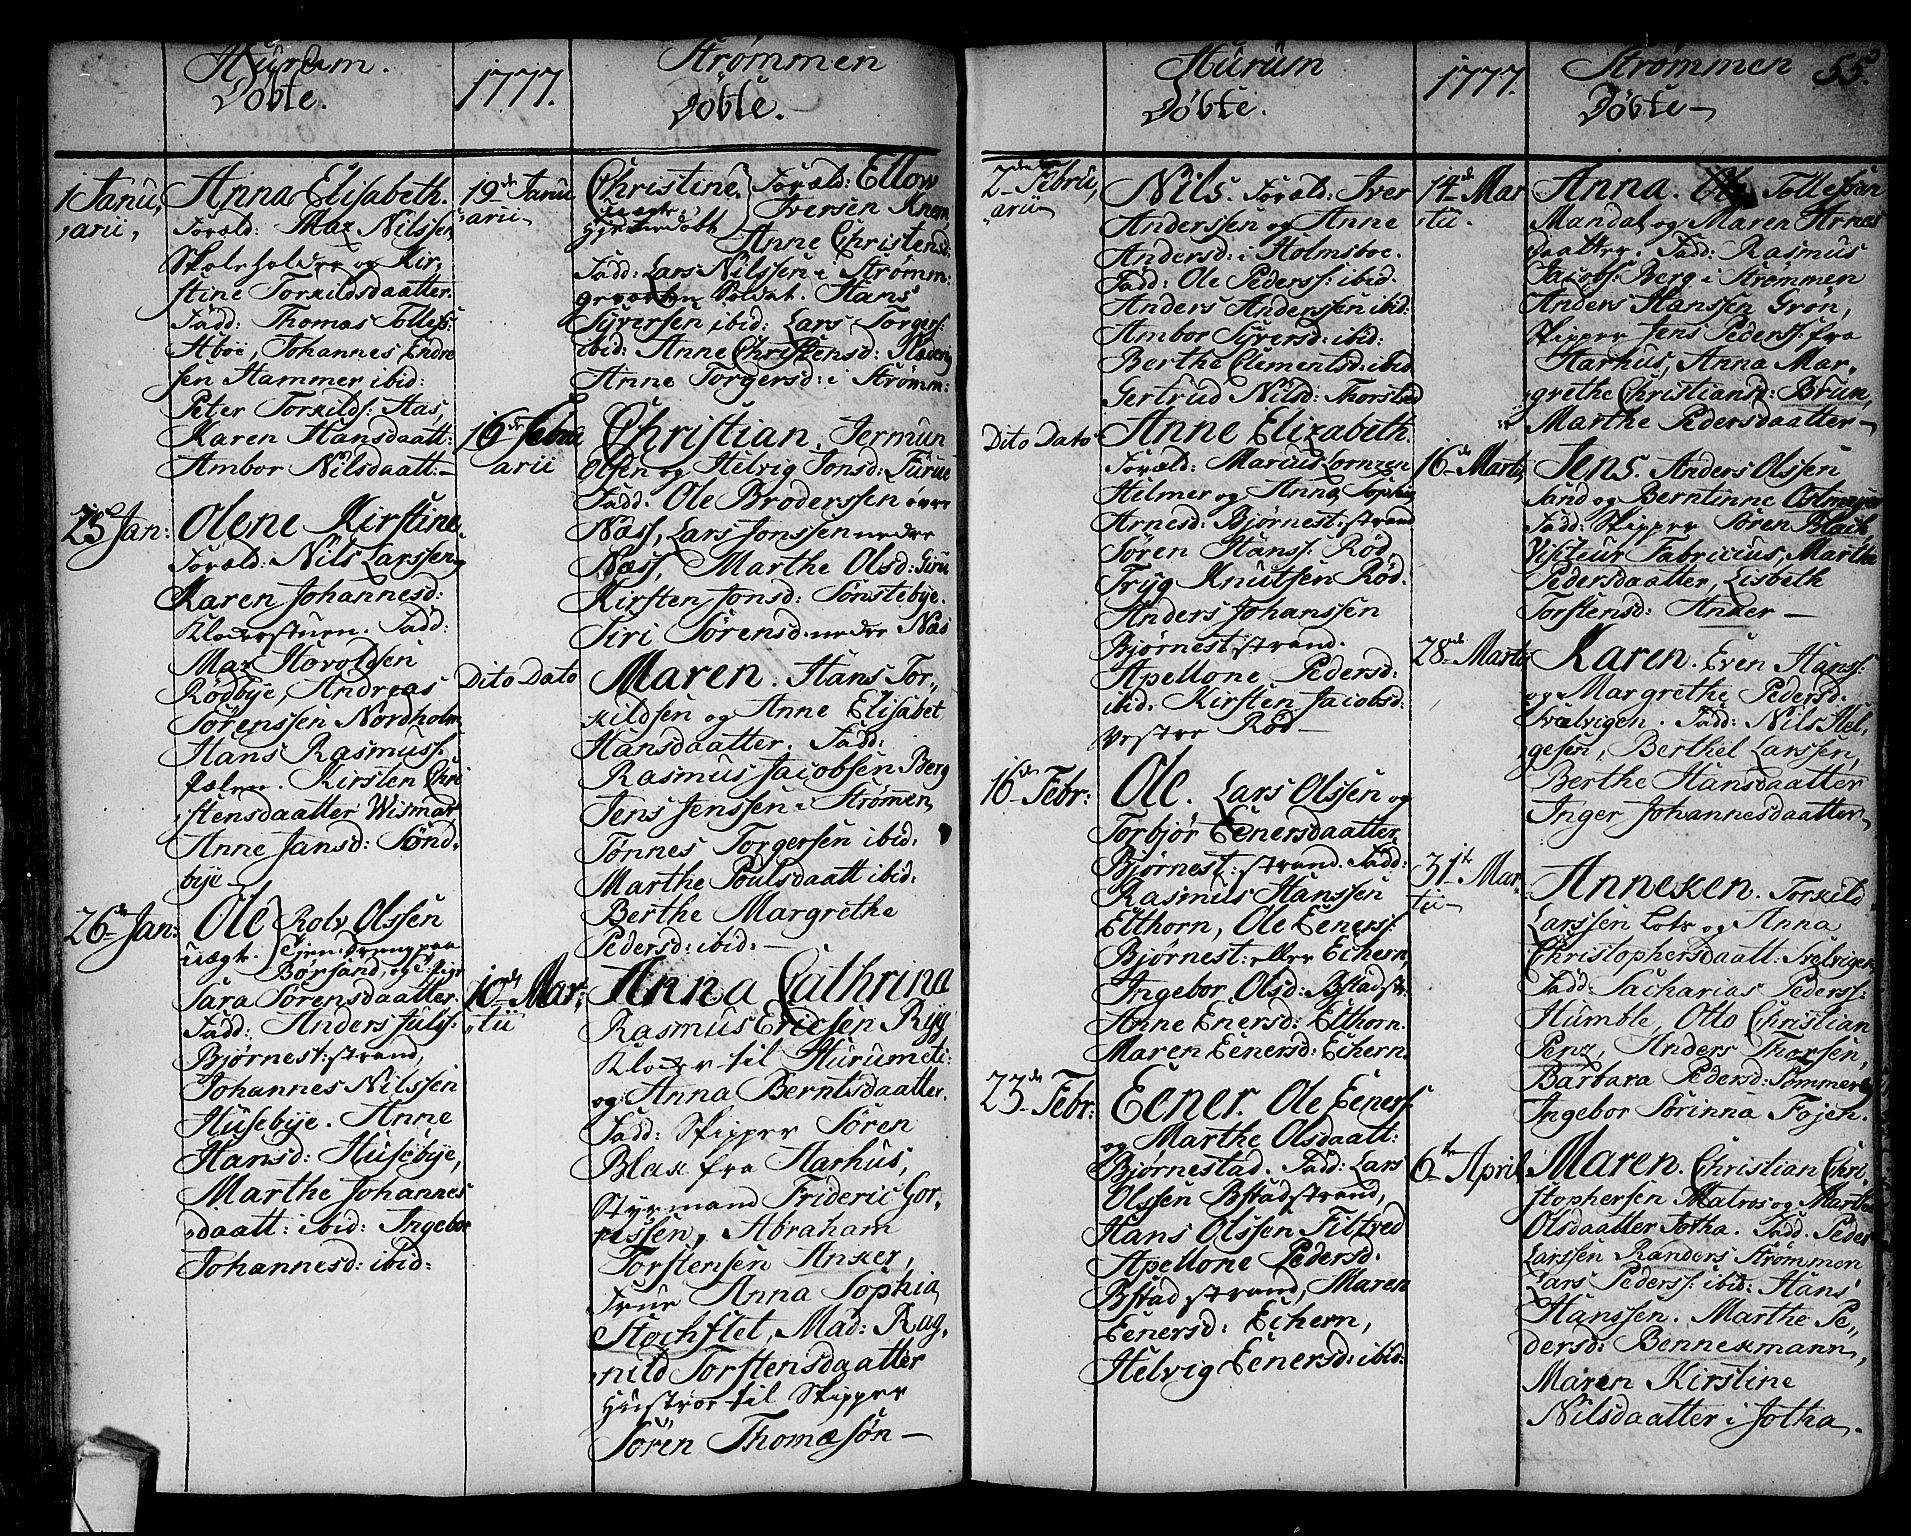 Hurum.
Döbte.
1777.
Strømmen
Döbte.
1 Janu,
,arii,
Anna Elisabeth.
Foræld: Max Nilssen
Skoleholder og Kir,
stine Torkildsdaatter:
Fadd: Thomas Tolless:
Aboe, Johannes Endre
sen Hammer ibid:
Peter Torkilds: Aas,
Karen Hansdaatt:
Ambor Nilsdaatt:—
25 Jan:
Olene Kirstine
Foræld: Nils Larssen
Karen Johannesd:
Klokerstuen. Fadd:
Max Havoldsen
Rödbye, Andreas
Sörenssen Nordholm
Hans Rasmuss:
Kirsten Chri
stensdaatter Wismar
Anne Jansd: Sönd,
bye—
26de Jan:
Ole
uægt.
Rolv Olssen
Börsand, og Pige
Sara Sörensdaatter.
Fadd: Anders Juliss:
Björnest: strand,
Johannes Nilssen
Husebye. Anne
Hansd: Husebye,
Marthe Johannes
,daatt: ibid: Ingebor
Johannesd: ibid:
19de Janu
,arii
Christine
uægte
Hjemmedöbt
Foræld: Ellow
Iversen
Anne Christensd:
Fadd: Lars Nilssen i Strømm:
gevorben Soldat. Hans
Syversen ibid: Lars Torgers:
ibid: Anne Christensd:
Anne Torgersd: i Strømm:
16de Febru
arii
Christian. Jermun
Olsen og Helvig Jonsd: Furue
Fadd: Ole Broderssen övre
Næss, Lars Jonssen nedre
Næss, Marthe Olsd:
Kirsten Jonsd: Sönstebye.
Siri Sörensd: nedre Næs
Dito Dato
Maren. Hans Tor,
kildsen og Anne Elisabet
Hansdaatter. Fadd:
Rasmus Jacobsen Berg
Jens Jenssen i Strömen,
Tönnes Torgersen ibid:
Marthe Poulsdaatt ibid:
Berthe Margrethe
Pedersd: ibid:—
10de Mar,
,tii
Anna Cathrina
Rasmus Ericsen Ryg
Kloker til Hurum etc:
og Anna Berntsdaatter.
Fadd: Skipper Sören
Blax fra Aarhus,
Styrmand Frideric Gor,
rissen, Abraham
Torstensen Anker,
Frue Anna Sophia
Stochflet, Mad: Rag,
,nild Torstensdaatter
Hustroe til Skipper
Sören Thomæsön—
Hurum
Döbte.
1777.
Strømmen
Döbte—
55.
2de Febru,
arii
Nils. Foræld: Iver
Anderssen og Anne
Andersd: i Holmsboe.
Fadd: Ole Pederss: ibid.
Anders Anderssen ibid:
Ambor Syversd: ibid:
Berthe Clementsd: ibid
Gertrud Nilsd: Thorstad
Dito Dato
Anne Elizabeth.
Foræld: Marcus Lornzen
Helmer og Anna Sophia
Arnesd: Björnest: strand
Sören Hanss: Röd
Tryg Knutsen Röd.
Anders Johanssen
Björnest strand.
Apellone Pedersd:
ibid. Kirsten Jacobsd:
vestre Röd—
16de Febr:
Ole. Lars Olssen og
Torbjör Eenersdaatter
Björnest: strand. Fadd:
Rasmus Hanssen
Elthorn, Ole Eeners:
Björnest: eller Echern
Ingebor Olsd: Bstadstr:
Anne Enersd: Elthorn.
Maren Eenersd: Echern.
23de Febr:
Eener. Ole Eeners:
og Marthe Olsdaatt:
Björnestad. Fadd: Lars
Olssen Bstadstrand,
Hans Olssen Filtved
Apellone Pedersd:
Bstad strand, Maren
Eenersd: Echern,
Helvig Eenersd: ibid:
14de Mar
tii.
Anna. Tollefsen
Mandal og Maren Arnes
daatter. Fadd: Rasmus
Jacobs: Berg i Strømmen
Anders Hanssen Grön,
Skipper Jens Pederss: fra
Aarhus, Anna Mar,
grethe Christiansd: Brun,
Marthe Pedersdaatter—
16de Martii
Jens. Anders Olssen
Sand og Berntinne
Fadd: Skipper Sören Black
Visiteur Fabricius, Martha
Pedersdaatter, Lisbeth
Torstensd: Anker—
28de Martii
Karen. Even Hans:
og Margrethe Pedersd.
Svælvigen. Fadd: Nils Hel,
gesen, Berthel Larssen,
Berthe Hansdaatter
Inger Johannesdaatter
31te Mar,
tii—
Anneken. Torkild
Larssen Lots og Anna
Christophersdaatt: Svelvigen
Fadd: Zacharias Peders:
Humble, Otto Christian
Penz, Anders Thorsen,
Barbara Pedersd: Sommer og
Ingebor Sörinna Fojen.
6te April,
Maren. Christian Chri,
stophersen Matros og Marthe
Olsdaatter Jotha. Fadd. Peder
Larssen Randers Strömmen
Lars Pederss: ibid: Hans
Hanssen. Marthe Pe,
dersd: Bennekmann,
Maren Kirstine
Nilsdaatter i Jotha.